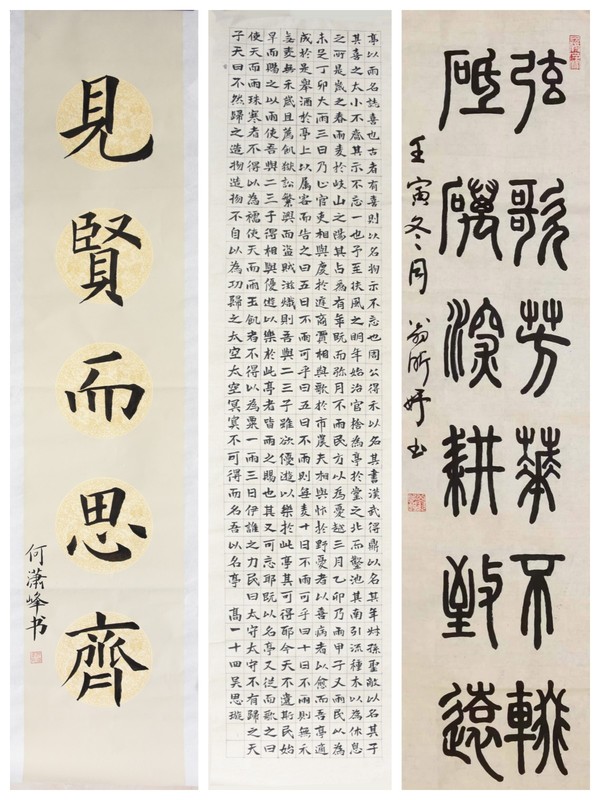 見賢而思齊
何瀟峰书
亭以雨名誌喜也古者有喜則以名物示不忘也周公得禾以名其書漢武得鼎以名其年叔孫聖敵以名其子
其喜之大小不齊其示不忘一也予至扶風之明年始治官捨為亭於堂之北而鑿池其南引流種木以為休息
之所是歲之春雨麦於岐山之陽其占為有年既而弥月不雨民方以為憂越三月乙卯乃雨甲子又雨民以為
未足丁卯大雨三日乃止官吏相與慶於庭商賈相與歌於市農夫相與忭於野憂者以喜病者以愈而吾亭適
成於是舉酒於亭上以屬客而告之曰五日不雨可乎曰五日不雨則無麦十日不雨可乎曰十日不雨則無禾
無麦無禾歲且薦飢獄訟繁興而盜賊滋熾則吾與二三子雖欲優遊以樂於此亭其可得耶今天不遺斯民始
旱而賜之以雨使吾與二三子得相與優遊以樂於此亭者皆雨之賜也其又可忘耶既以名亭又從而歌之曰
使天而雨珠寒者不得以為襦使天而雨玉飢者不得以為粟一雨三日伊誰之力民曰太守太守不有歸之天
子天曰不然歸之造物造物不自以為功歸之太空太空冥冥不可得而名吾以名亭 高一十四吴思璇
弦歌芳華不輟
砥礪深耕致遠
壬寅冬月 翁昕妤书